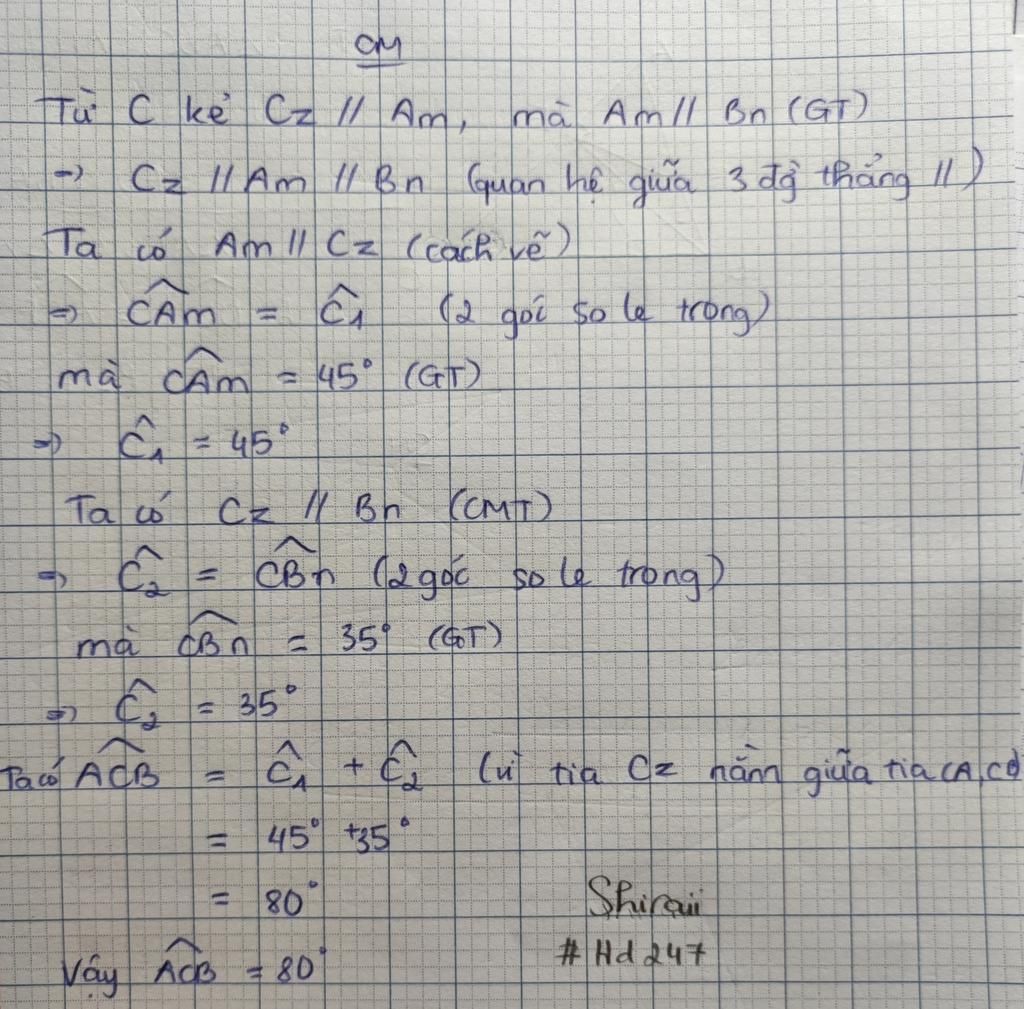 CM
Từ C kẻ Cz // Am, mà Am // Bn (GT)
=> Cz // Am // Bn (quan hệ giữa 3 đg̀ thẳng //)
Ta có Am // Cz (cách vẽ)
=> CÂm = Ĉ1 (2 góc so le trong)
mà CÂm = 45° (GT)
=> Ĉ1 = 45°
Ta có Cz // Bn (CMT)
=> Ĉ2 = CB̂n (2 góc so le trong)
mà CB̂n = 35° (GT)
=> Ĉ2 = 35°
Ta có AĈB = Ĉ1 + Ĉ2 (vì tia Cz nằm giữa tia CA, CB
= 45° + 35°
= 80°
Shiraii
Vậy AĈB = 80°
#Hd247